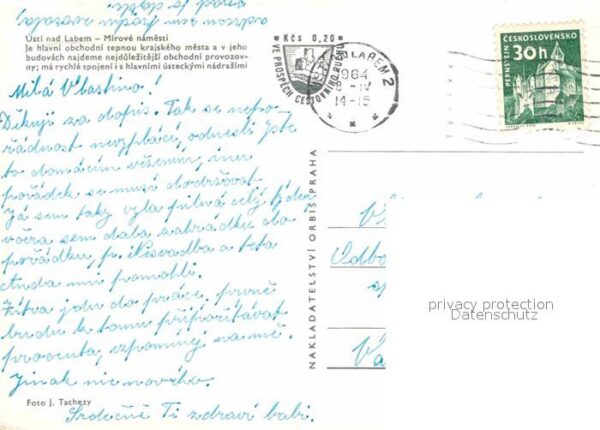 Ústí nad Labem — Mírové náměstí
Je hlavní obchodní tepnou krajského města a v jeho
budovách najdeme nejdůležitější obchodní provozov-
ny; má rychlé spojení i s hlavními ústeckými nádražími
Milá Vlastino!
Děkuji za dopis. Tak se nepo-
řádnost nevyplácí, odnesli jste
to domácím vězením, inu
pořádek se musí dodržovat.
Já sem taky byla pilná celý týden,
včera sem dala zahrádku do
pořádku, p. Nesvadba a teta
Anda mi pomohli.
Zítra jdu do práce, prvně
budu k tomu připočítávat
procenta, vzpomínej na mě.
Jinak nic nového.
Srdečně Ti zdraví babi.
Foto J. Tachezy
NAKLADATELSTVÍ ORBIS, PRAHA
Kčs 0,20
VE PROSPĚCH CESTOVNÍHO RUCHU
LABEM 2
1964
8 -IV
14-15
ČESKOSLOVENSKO
30h
PERNŠTEJN
Odbo
privacy protection
Datenschutz